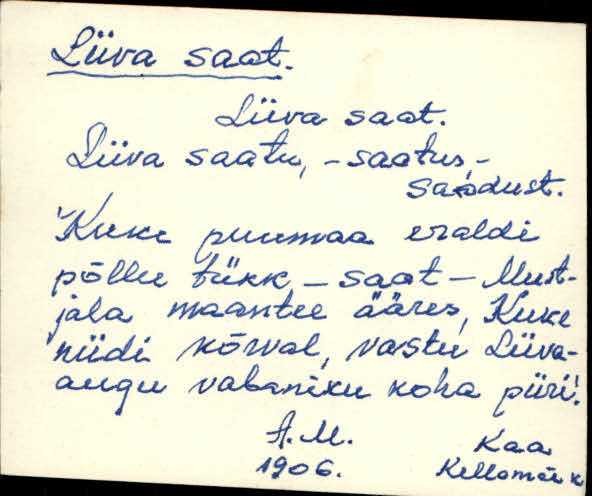 Liiva saat.
Liiva saat.
Liiva saatu, - saatus, -
saadust.
'Kuke puumaa eraldi
põllu tükk, - saat - Must-
jala maantee ääres, Kuke
niidi kõrval, vastu Liiva-
augu vabaniku koha piiri'.
A. M. Kaa
1906. Kellamäe k